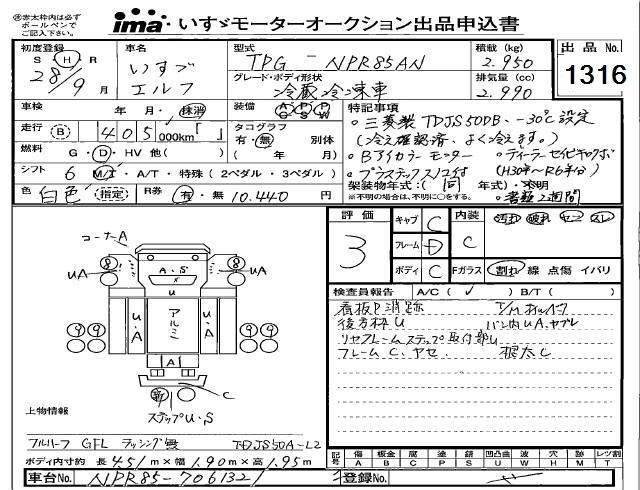 ※赤太枠内は必ず
ボールペンで
ご記入下さい。
ima いすゞモーターオークション出品申込書
初度登録 S H R 28/9 月
車名 いすゞ エルフ
型式 TPG - NPR85AN
グレード・ボディ形状 冷蔵冷凍車
積載 (kg) 2.950
排気量 (cc) 2.990
出品 No. 1316
車検 年 月・抹消
装備 AC PS PW
走行 B 405,000km「 」
タコグラフ 有・無 別体 ( 年 月)
燃料 G・D・HV 他( )
シフト 6 M/T・A/T・特殊(2ペダル・3ペダル)
色 白色 (指定) R券 有・無 10.440 円
特記事項
○三菱製TDJS50DB、-30℃設定
(冷え確認済、よく冷えます。)
○Bアイカラーモニター ○ディーラーセイビキロクボ
(H30年〜R6年分)
架装物年式:(同 年式)・不明
※不明の場合は、不明に○をする。
評価 3
キャブ C
フレーム D
ボディ C
内装 C
Fガラス
汚れ 破れ ヤニ スレ
割れ 線 点傷 イバリ
検査員報告 A/C( ✓ ) B/T( )
看板P消跡
後方枠U
リヤフレームステップ取付部U
フレームC、サビ 根太C
コーナーA
8 8
UA A・S UA
U
U・A アルミ U・A
9 9 9 9
A
新
C
ステップU・S
上物情報
フルハーフ GFL ラッシング無 TDJS50A-L2
ボディ内寸約 長 4.51m×幅 1.90m×高 1.95m
記号 傷 A 板金 B 腐 C 塗 P 錆 S 凹凸曲 U 波 W 穴 H モ M レッツ割 T
車台No. NPR85-7061327
登録No.